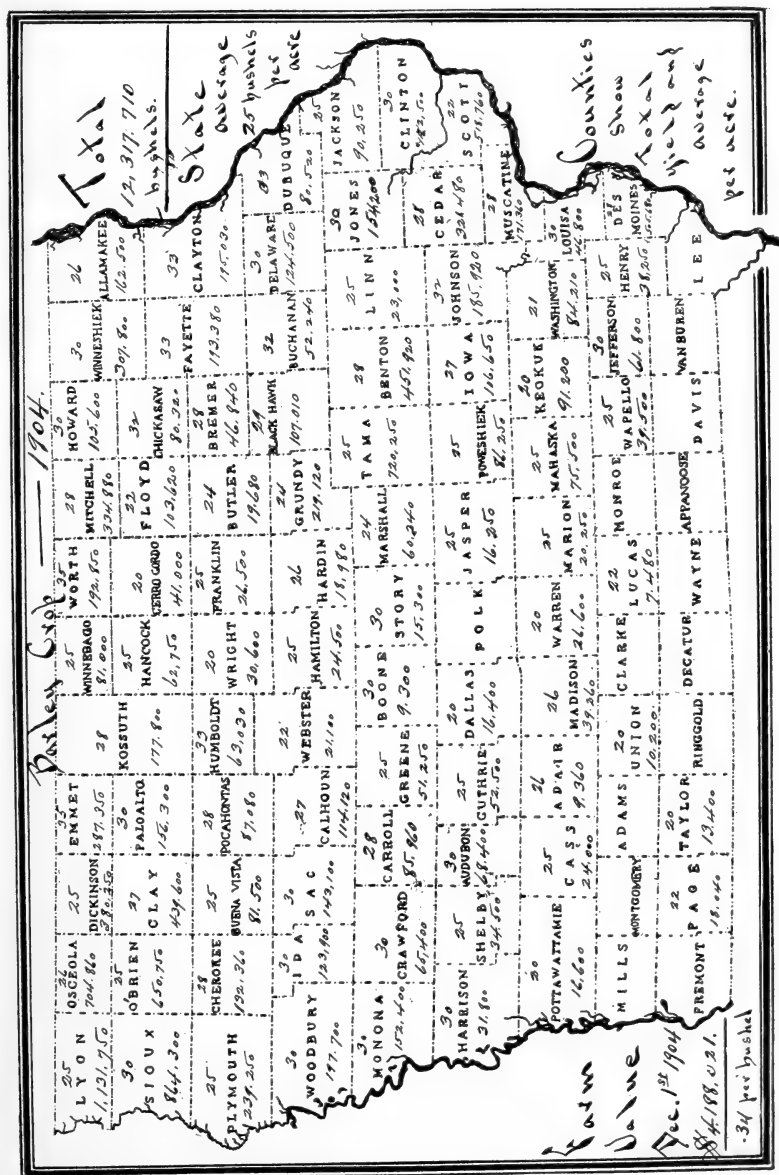 Barley Crop — 1904.
Total
12,317,710
bushels.
State
average
25 bushels
per
acre
Counties
show
Total
yield and
average
per acre.
Farm
Value
Dec. 1st 1904
$4,188,021.
.34 per bushel
25
LYON
1,131,750
26
OSCEOLA
704,860
25
DICKINSON
380,350
35
EMMET
287,350
25
WINNEBAGO
81,000
35
WORTH
192,850
28
MITCHELL
334,880
30
HOWARD
105,600
30
WINNESHIEK
307,800
26
ALLAMAKEE
162,500
30
SIOUX
864,300
25
O'BRIEN
650,750
27
CLAY
439,600
30
PALO ALTO
156,300
28
KOSSUTH
177,800
25
HANCOCK
62,750
20
CERRO GORDO
41,000
22
FLOYD
103,620
32
CHICKASAW
80,320
33
FAYETTE
193,380
33
CLAYTON
195,030
25
PLYMOUTH
239,250
28
CHEROKEE
192,360
25
BUENA VISTA
81,500
28
POCAHONTAS
87,080
33
HUMBOLDT
63,030
20
WRIGHT
30,600
25
FRANKLIN
26,500
24
BUTLER
19,680
28
BREMER
46,840
29
BLACK HAWK
107,010
32
BUCHANAN
52,240
30
DELAWARE
124,500
33
DUBUQUE
80,520
30
WOODBURY
197,700
30
IDA
123,900
30
SAC
143,100
27
CALHOUN
114,120
22
WEBSTER
21,100
25
HAMILTON
24,500
26
HARDIN
18,980
24
GRUNDY
219,120
25
TAMA
720,250
28
BENTON
451,920
25
LINN
23,000
30
JONES
154,200
25
JACKSON
90,250
30
MONONA
152,400
30
CRAWFORD
65,400
28
CARROLL
85,960
25
GREENE
51,250
30
BOONE
9,300
30
STORY
15,300
24
MARSHALL
60,240
30
CLINTON
28
CEDAR
326,480
22
SCOTT
518,760
30
HARRISON
31,800
25
SHELBY
34,500
30
AUDUBON
68,400
25
GUTHRIE
52,500
20
DALLAS
16,400
POLK
25
JASPER
16,250
25
POWESHIEK
86,250
27
IOWA
116,650
32
JOHNSON
185,920
28
MUSCATINE
71,360
20
POTTAWATTAMIE
16,600
25
CASS
24,000
26
ADAIR
9,360
26
MADISON
39,260
20
WARREN
26,600
25
MARION
20,250
25
MAHASKA
75,500
20
KEOKUK
91,200
21
WASHINGTON
84,210
30
LOUISA
46,800
MILLS
MONTGOMERY
ADAMS
20
UNION
10,200
CLARKE
22
LUCAS
7,480
MONROE
25
WAPELLO
39,500
30
JEFFERSON
61,800
25
HENRY
38,250
DES
MOINES
FREMONT
22
PAGE
18,040
20
TAYLOR
13,400
RINGGOLD
DECATUR
WAYNE
APPANOOSE
DAVIS
VAN BUREN
LEE